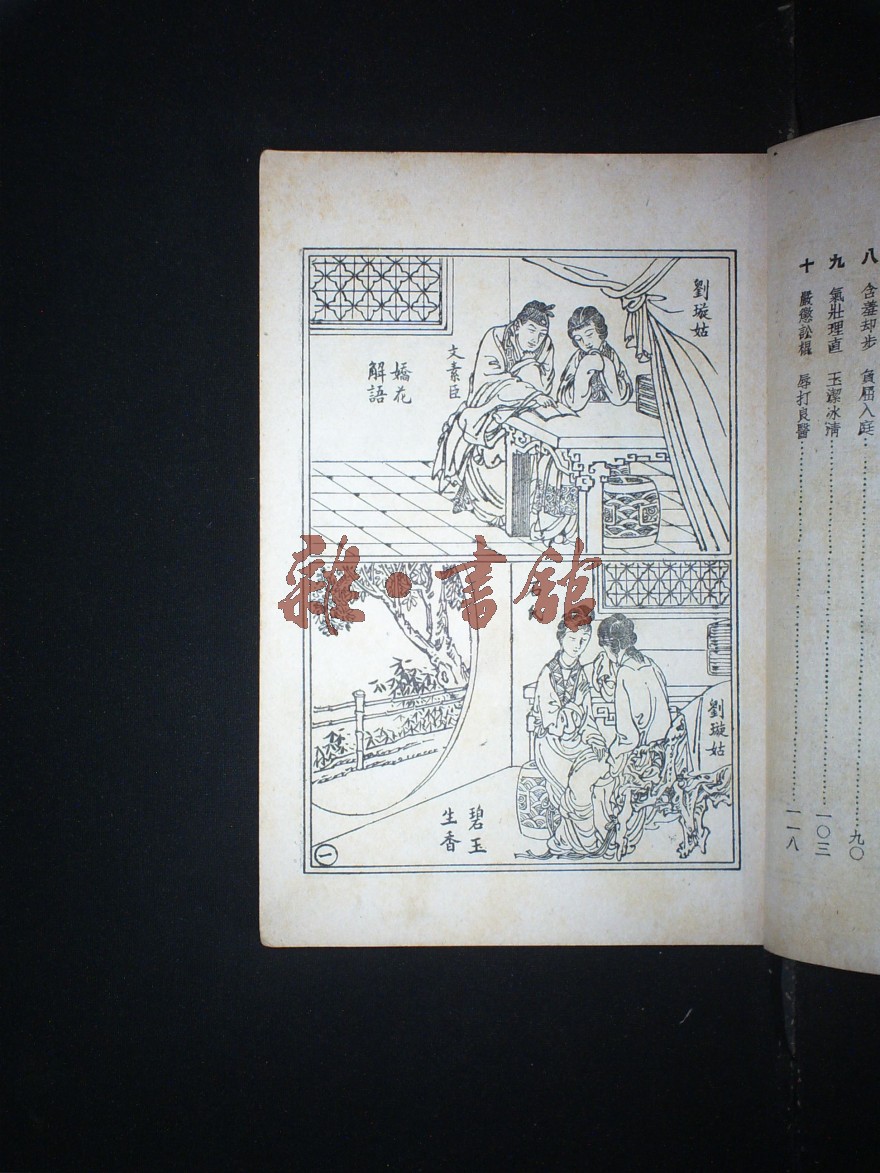 八　含羞却步　負屈入庭……九〇
九　氣壯理直　玉潔冰清……一〇三
十　嚴懲訟棍　辱打良醫……一一八
劉璇姑
文素臣
嬌花
解語
劉璇姑
碧玉
生香
一
雜·書館